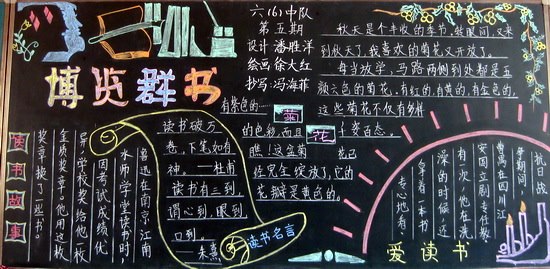 博览群书
六(6)中队
第五期
设计 潘胜洋
绘画 徐大红
抄写:冯海菲
秋天是个丰收的季节,转眼间,又来
到秋天了,我喜欢的菊花又开放了。
每当放学,马路两侧到处都是五
颜六色的菊花,有红的,有黄的,有金色的,
有紫色的……
这些菊花不仅有多样
的色彩,而且
千姿百态。
菊花
瞧!这盆菊
花已
经完全绽放了,它的
花瓣是黄色的,
读书故事
鲁迅在南京江南
水师学堂读书时,
因考试成绩优
异,学校奖给他一枚
金质奖章。他用这枚
奖章换了一些书。
读书破万
卷,下笔如有
神。——杜甫
读书有三到,
谓心到,眼到
口到。
——朱熹
读书名言
抗日战
争期间,
曹禺在四川江
安国立剧专任教
有次,他在洗
澡的时候还
拿着一本书
专心地看。
爱读书